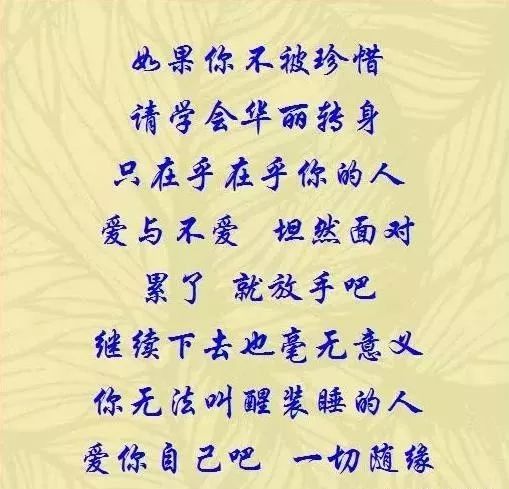 如果你不被珍惜
请学会华丽转身
只在乎在乎你的人
爱与不爱 坦然面对
累了 就放手吧
继续下去也毫无意义
你无法叫醒装睡的人
爱你自己吧 一切随缘